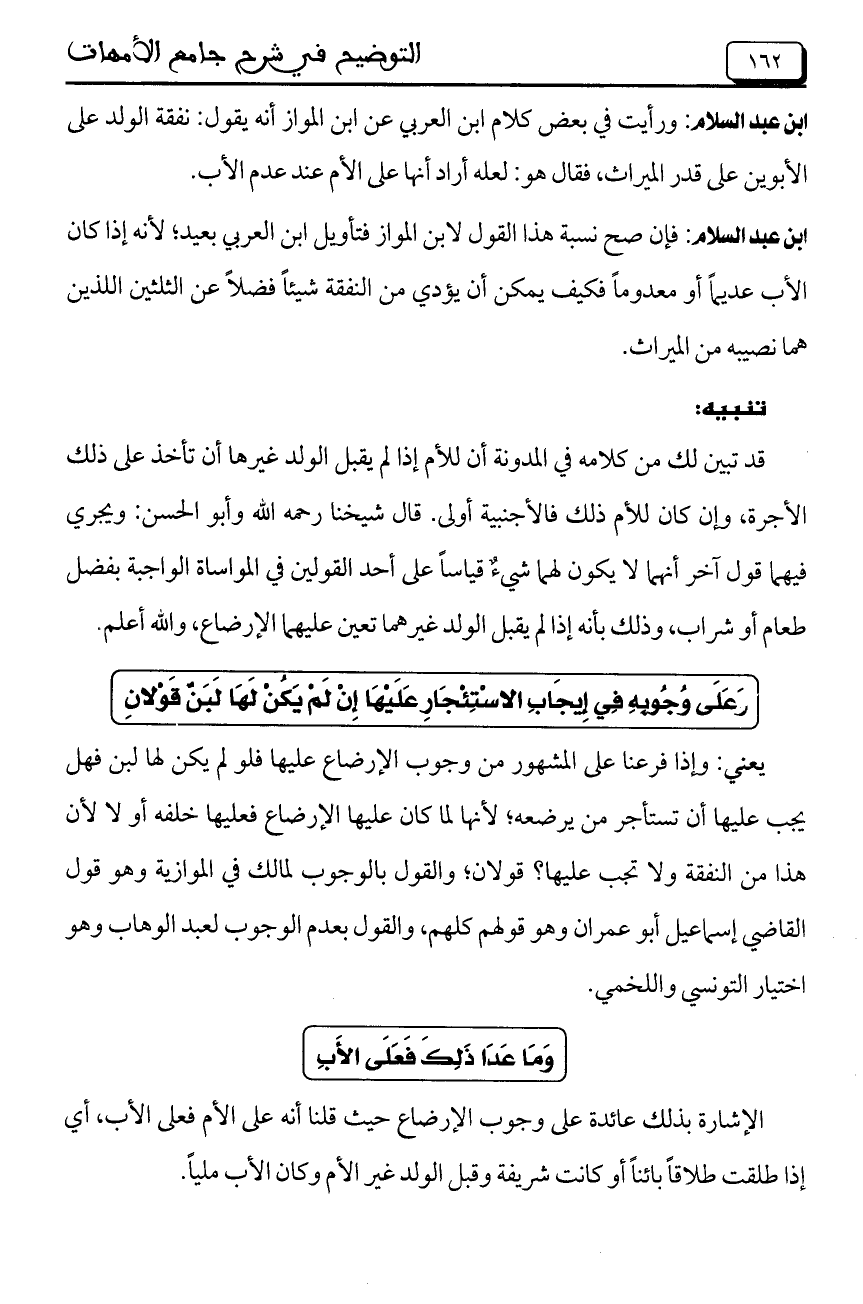 ١٦٢
التوضيح في شرح جامع الأمهات
ابن عبد السلام: ورأيت في بعض كلام ابن العربي عن ابن المواز أنه يقول: نفقة الولد على
الأبوين على قدر الميراث، فقال هو: لعله أراد أنها على الأم عند عدم الأب.
ابن عبد السلام: فإن صح نسبة هذا القول لابن المواز فتأويل ابن العربي بعيد؛ لأنه إذا كان
الأب عديماً أو معدوماً فكيف يمكن أن يؤدي من النفقة شيئاً فضلاً عن الثلثين اللذين
هما نصيبه من الميراث.
تنبيه:
قد تبين لك من كلامه في المدونة أن للأم إذا لم يقبل الولد غيرها أن تأخذ على ذلك
الأجرة، وإن كان للأم ذلك فالأجنبية أولى. قال شيخنا رحمه الله وأبو الحسن: ويجري
فيهما قول آخر أنهما لا يكون لهما شيءٌ قياساً على أحد القولين في المواساة الواجبة بفضل
طعام أو شراب، وذلك بأنه إذا لم يقبل الولد غيرهما تعين عليهما الإرضاع، والله أعلم.
رَعَلَى وُجُوبِهِ فِي إِيجَابِ الاسْتِئْجَارِ عَلَيْهَا إِنْ لَمْ يَكُنْ لَهَا لَبَنٌ قَوْلانِ
يعني: وإذا فرعنا على المشهور من وجوب الإرضاع عليها فلو لم يكن لها لبن فهل
يجب عليها أن تستأجر من يرضعه؛ لأنها لما كان عليها الإرضاع فعليها خلفه أو لا لأن
هذا من النفقة ولا تجب عليها؟ قولان؛ والقول بالوجوب لمالك في الموازية وهو قول
القاضي إسماعيل أبو عمران وهو قولهم كلهم، والقول بعدم الوجوب لعبد الوهاب وهو
اختيار التونسي واللخمي.
وَمَا عَدَا ذَلِكَ فَعَلَى الأَبِ
الإشارة بذلك عائدة على وجوب الإرضاع حيث قلنا أنه على الأم فعلى الأب، أي
إذا طلقت طلاقاً بائناً أو كانت شريفة وقبل الولد غير الأم وكان الأب ملياً.